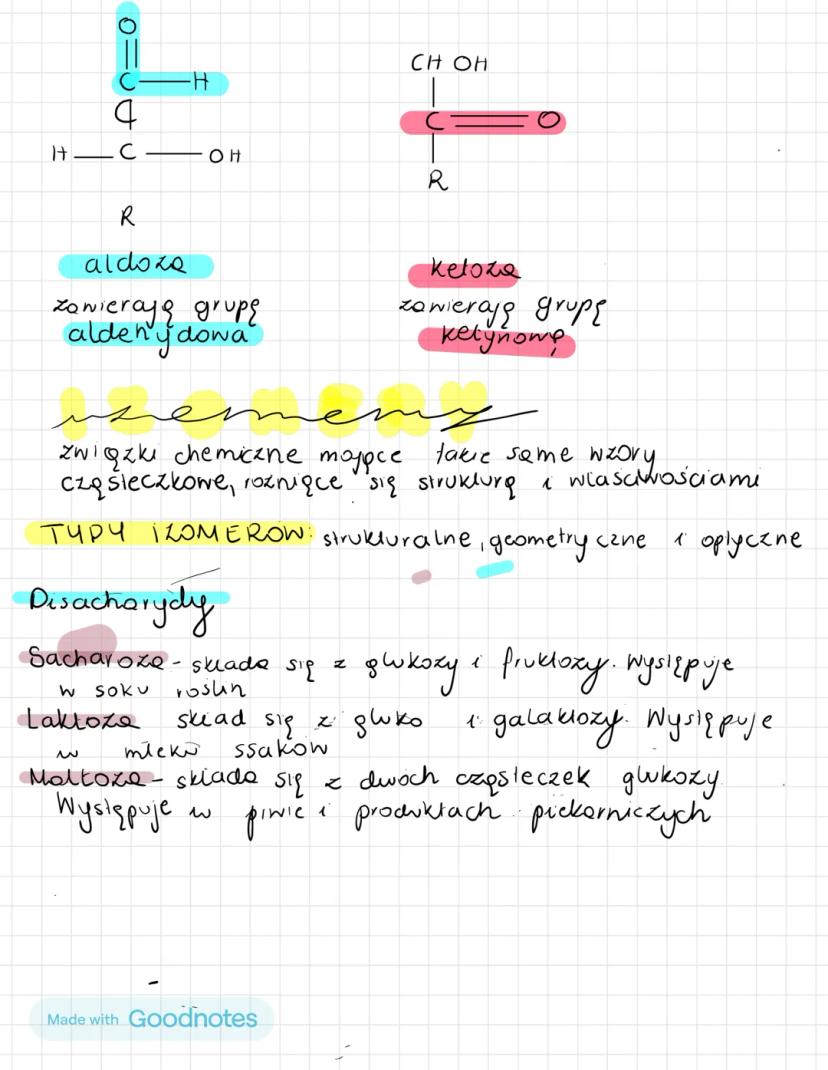 O
C H
H C OH
R
CH OH
C O
R
aldoza
zawierają grupę
aldehydowa
ketoza
zawierają grupę
ketynową
izomery
związki chemiczne mające takie same wzory
cząsteczkowe, rożniące się strukturą i właściwościami
TYPY IZOMEROW: strukturalne, geometryczne i optyczne
Disacharydy
Sacharoza - składa się z glukozy i fruktozy. Występuje
w soku roślin
Laktoza skład się z gluko i galaktozy. Występuje
w mleku ssaków
Maltoza - składa się z dwóch cząsteczek glukozy
Występuje w piwie i produktach piekarniczych
Made with Goodnotes